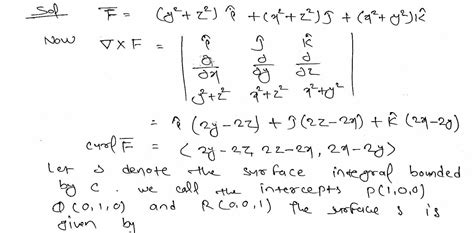 Sol F̅ = (y²+z²) î + (x²+z²) ĵ + (x²+y²) k̂
Now ∇×F = | î ĵ k̂
∂/∂x ∂/∂y ∂/∂z
y²+z² x²+z² x²+y² |
= î (2y-2z) + ĵ (2z-2x) + k̂ (2x-2y)
curl F̅ = < 2y-2z, 2z-2x, 2x-2y >
Let s denote the surface integral bounded
by c. we call the intercepts P(1,0,0)
Q(0,1,0) and R(0,0,1) The surface s is
given by